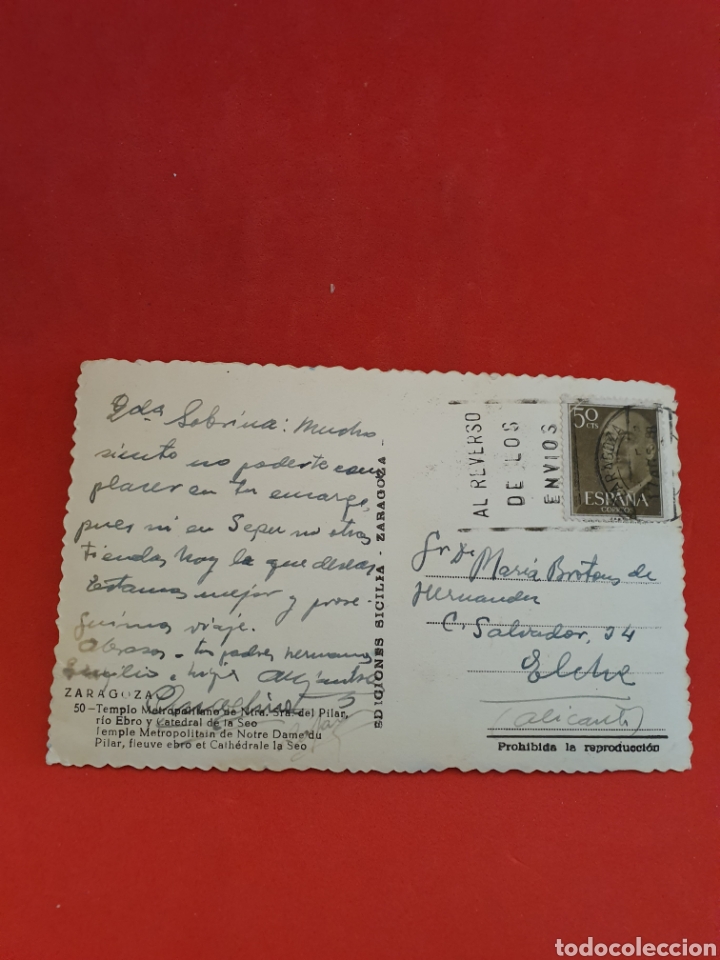 Qda Sobrina: Mucho
siento no poderte com
placer en tu encargo,
pues ni en Sepu ni otras
tiendas hay la que deseas
Estamos mejor y prose
guimos viaje.
Abrazos a tus padres hermanos
Emilio e hija
ZARAGOZA
50-Templo Metropolitano de Ntra. Sra. del Pilar,
río Ebro y Catedral de la Seo
Temple Metropolitain de Notre Dame du
Pilar, fleuve ebro et Cathédrale la Seo
EDICIONES SICILIA - ZARAGOZA -
AL REVERSO
DE LOS
ENVIOS
50
CTS
ESPAÑA
CORREO
ZARAGOZA
Sr Da María Brotons de
Hernandez
C. Salvador, 24
Elche
(Alicante)
Prohibida la reproducción
todocoleccion